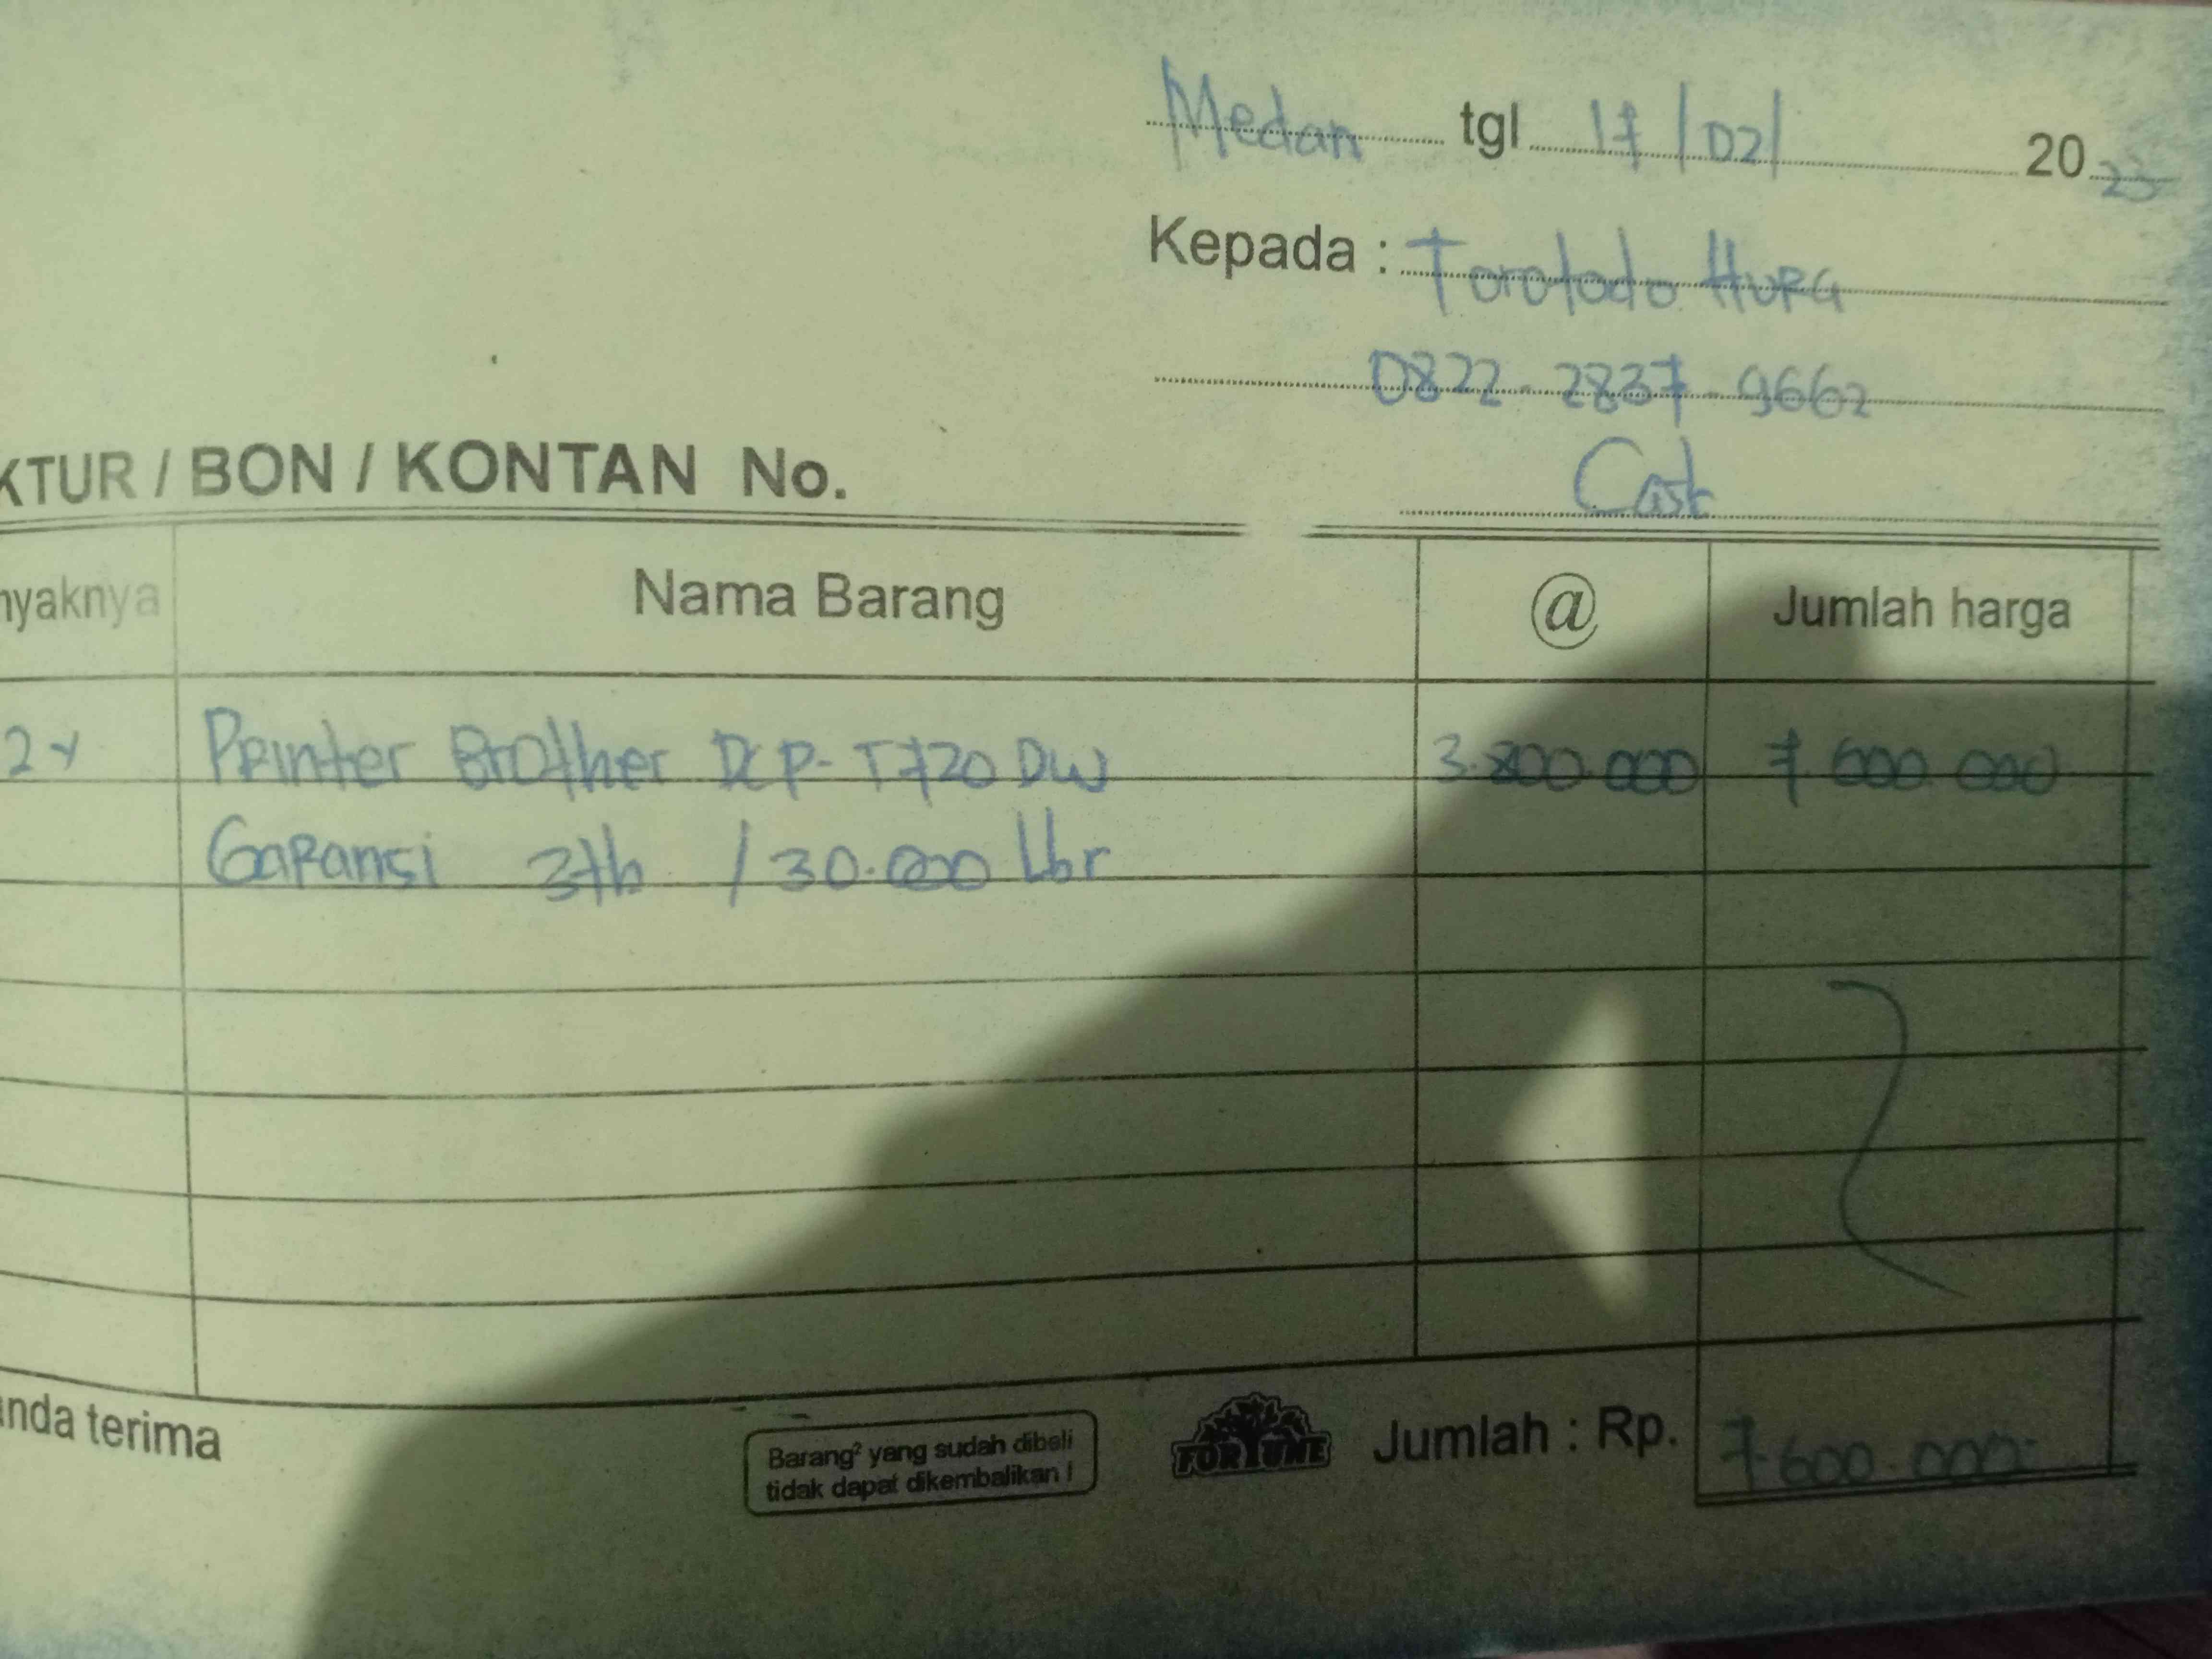 Medan tgl 17/02/ 2023
Kepada : Torotodo Hura
0822-2837-9662
Cash
KTUR / BON / KONTAN No.
nyaknya Nama Barang @ Jumlah harga
2x Printer Brother DCP-T720DW 3.800.000 7.600.000
Garansi 3th / 30.000 Lbr
anda terima
Barang² yang sudah dibeli
tidak dapat dikembalikan !
FORTUNE
Jumlah : Rp. 7.600.000